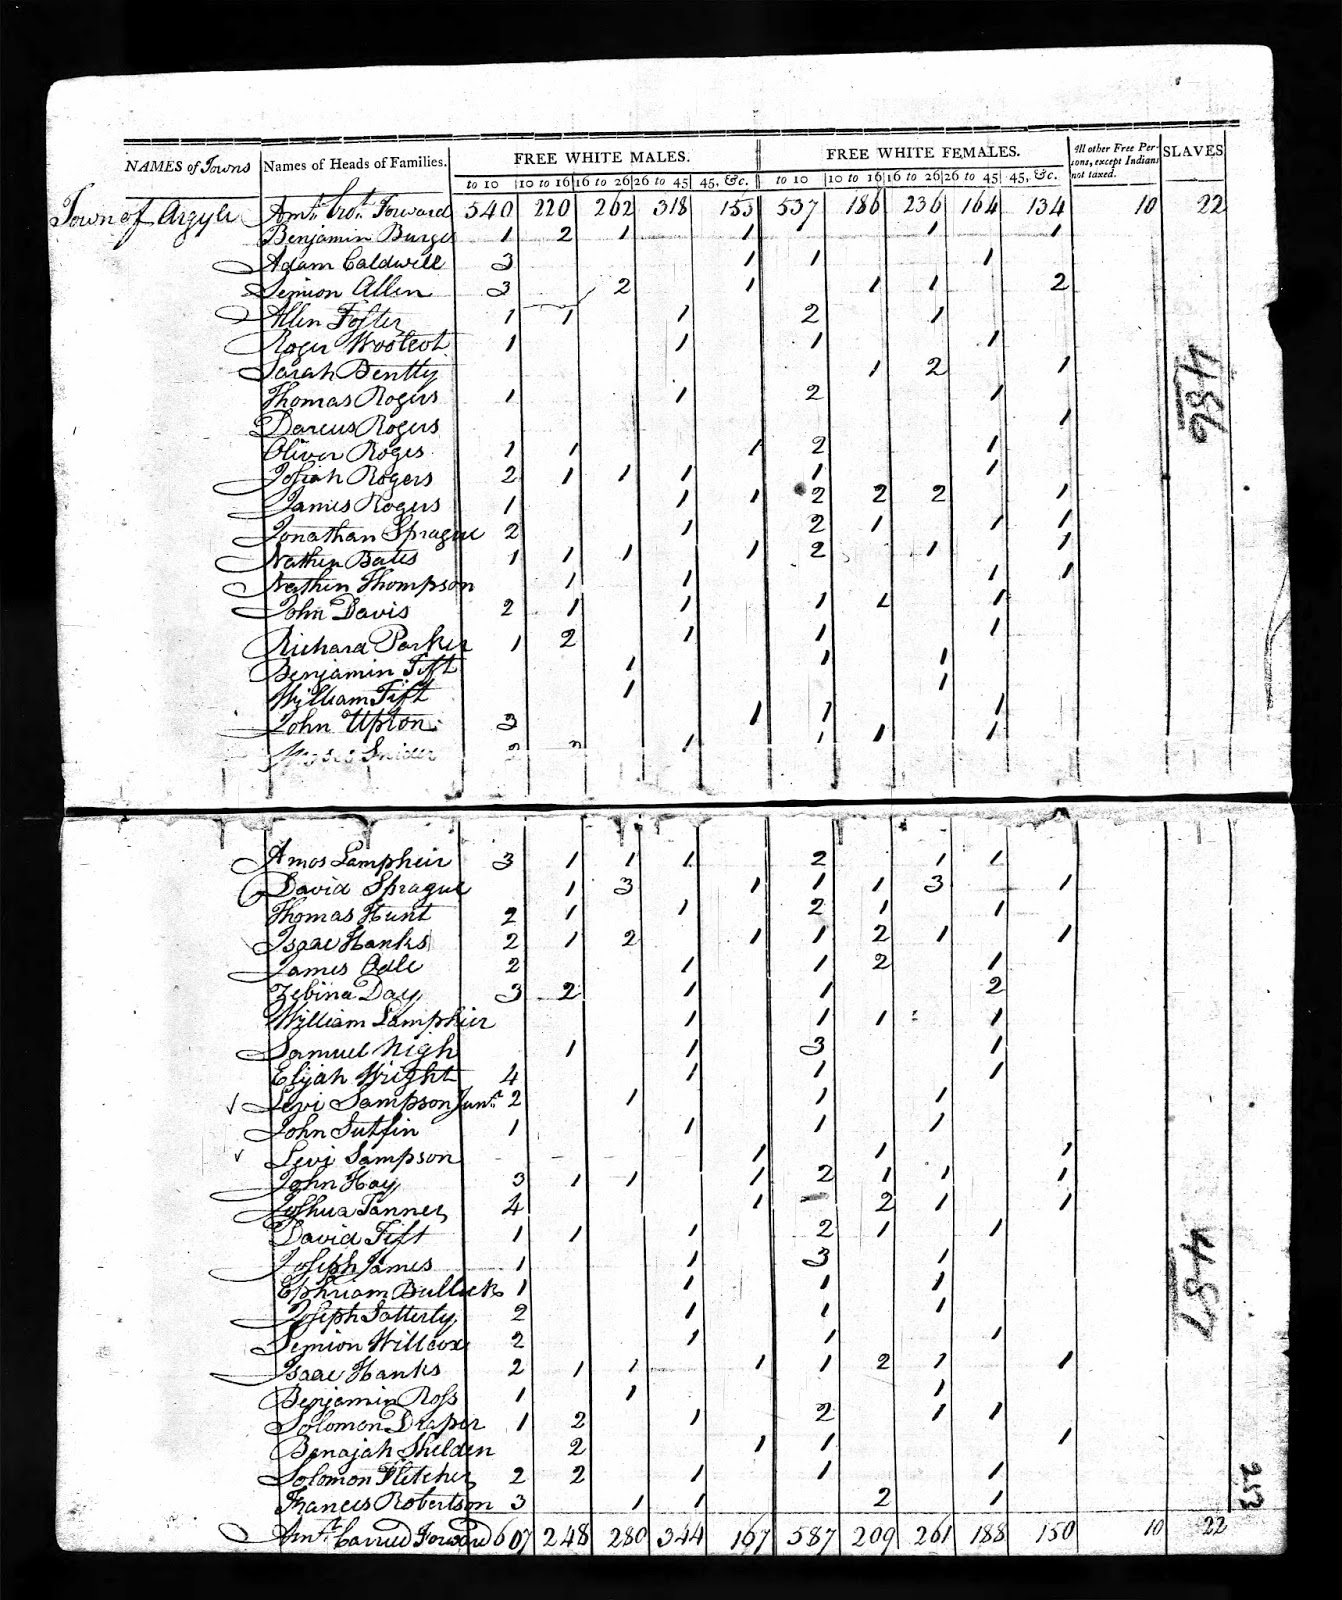 NAMES of Towns Names of Heads of Families. FREE WHITE MALES. FREE WHITE FEMALES. All other Free Persons, except Indians not taxed. SLAVES
to 10 10 to 16 16 to 26 26 to 45 45, &c. to 10 10 to 16 16 to 26 26 to 45 45, &c.
Town of Argyle Amt. Brot. Forward 540 220 262 318 153 537 186 236 164 134 10 22
Benjamin Burges 1 2 1 1 1 1
Adam Caldwell 3 1 1 1
Semion Allen 3 2 1 1 1 2
Allen Foster 1 1 1 2 1
Roger Woolcot 1 1 1 1
Sarah Bentty 1 2 1
Thomas Rogers 1 1 2 1
Darcus Rogers 1
Oliver Roges 1 1 1 2 1
Josiah Rogers 2 1 1 1 1 1
James Rogers 1 1 1 2 2 2 1
Jonathan Sprague 2 1 2 1 1 1
Nathen Bates 1 1 1 1 2 1 1
Nathen Thompson 1 1 1 1
John Davis 2 1 1 1 1 1
Richard Parker 1 2 1 1 1
Benjamin Tift 1 1 1
William Tift 1 1
John Upton 3 1 1 1
Moses Snider 2 2 1 1 1 1
486
Amos Lampheir 3 1 1 1 2 1 1
David Sprague 1 3 1 1 1 3 1
Thomas Hunt 2 1 1 2 1 1
Isaac Hanks 2 1 2 1 1 2 1 1
James Odle 2 1 1 2 1
Zebina Day 3 2 1 1 2
William Lamphier 1 1 1 1
Samuel Nigh 1 1 3 1
Elijah Wright 4 1 1 1
Levi Sampson Junr. 2 1 1 1
John Sutfin 1 1 1 1
Levi Sampson 1 1 1
John Hay 3 1 1 1 2 1 1 1
Joshua Tanner 4 1 1 2 1 1
David Tift 1 1 1 2 1 1
Joseph James 1 1 3 1
Ephriam Bulluck 1 1 1 1
Joseph Satterly 2 1 1 1
Semion Willcox 2 1 1 1
Isaac Hanks 2 1 1 1 1 2 1 1
Benjamin Ross 1 1 1
Solomon Draper 1 2 1 2 1 1
Benajah Shelden 2 1 1 1
Solomon Fletcher 2 2 1 1 1
Francis Robertson 3 1 1 2 1
Amt. Carried Forward 607 248 280 344 167 587 209 261 188 150 10 22
487
253